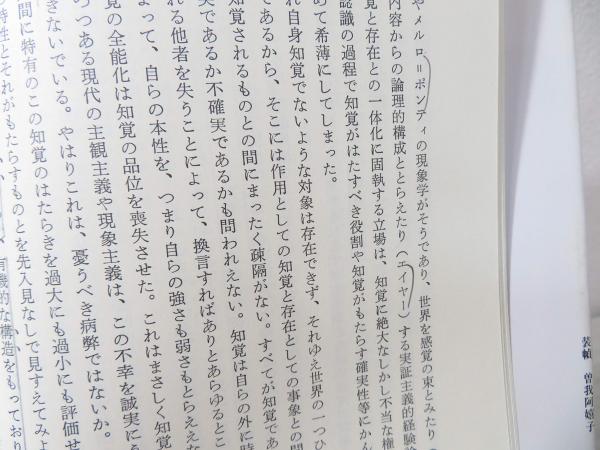 やメルロ＝ポンティの現象学がそうであり、世界を感覚の束とみたり（
内容からの論理的構成ととらえたり（エイヤー）する実証主義的経験論
覚と存在との一体化に固執する立場は、知覚に絶大なしかし不当な権
認識の過程で知覚がはたすべき役割や知覚がもたらす確実性等にかん
めて希薄にしてしまった。
れ自身知覚でないような対象は存在できず、それゆえ世界の一つひ
であるから、そこには作用としての知覚と存在としての事象との間
知覚されるものとの間にまったく疎隔がない。すべてが知覚であ
実であるか不確実であるかも問われえない。知覚は自らの外に時
れる他者を失うことによって、換言すればありとあらゆるとこ
よって、自らの本性を、つまり自らの強さも弱さもとらええな
覚の全能化は知覚の品位を喪失させた。これはまさしく知覚
つつある現代の主観主義や現象主義は、この不幸を誠実にう
きないでいる。やはりこれは、憂うべき病弊ではないか。
間に特有のこの知覚のはたらきを過大にも過小にも評価せ
特性とそれがもたらすものとを先入見なしで見すえてみよ
有機的な構造をもっており
装幀　曽我阿嬉子